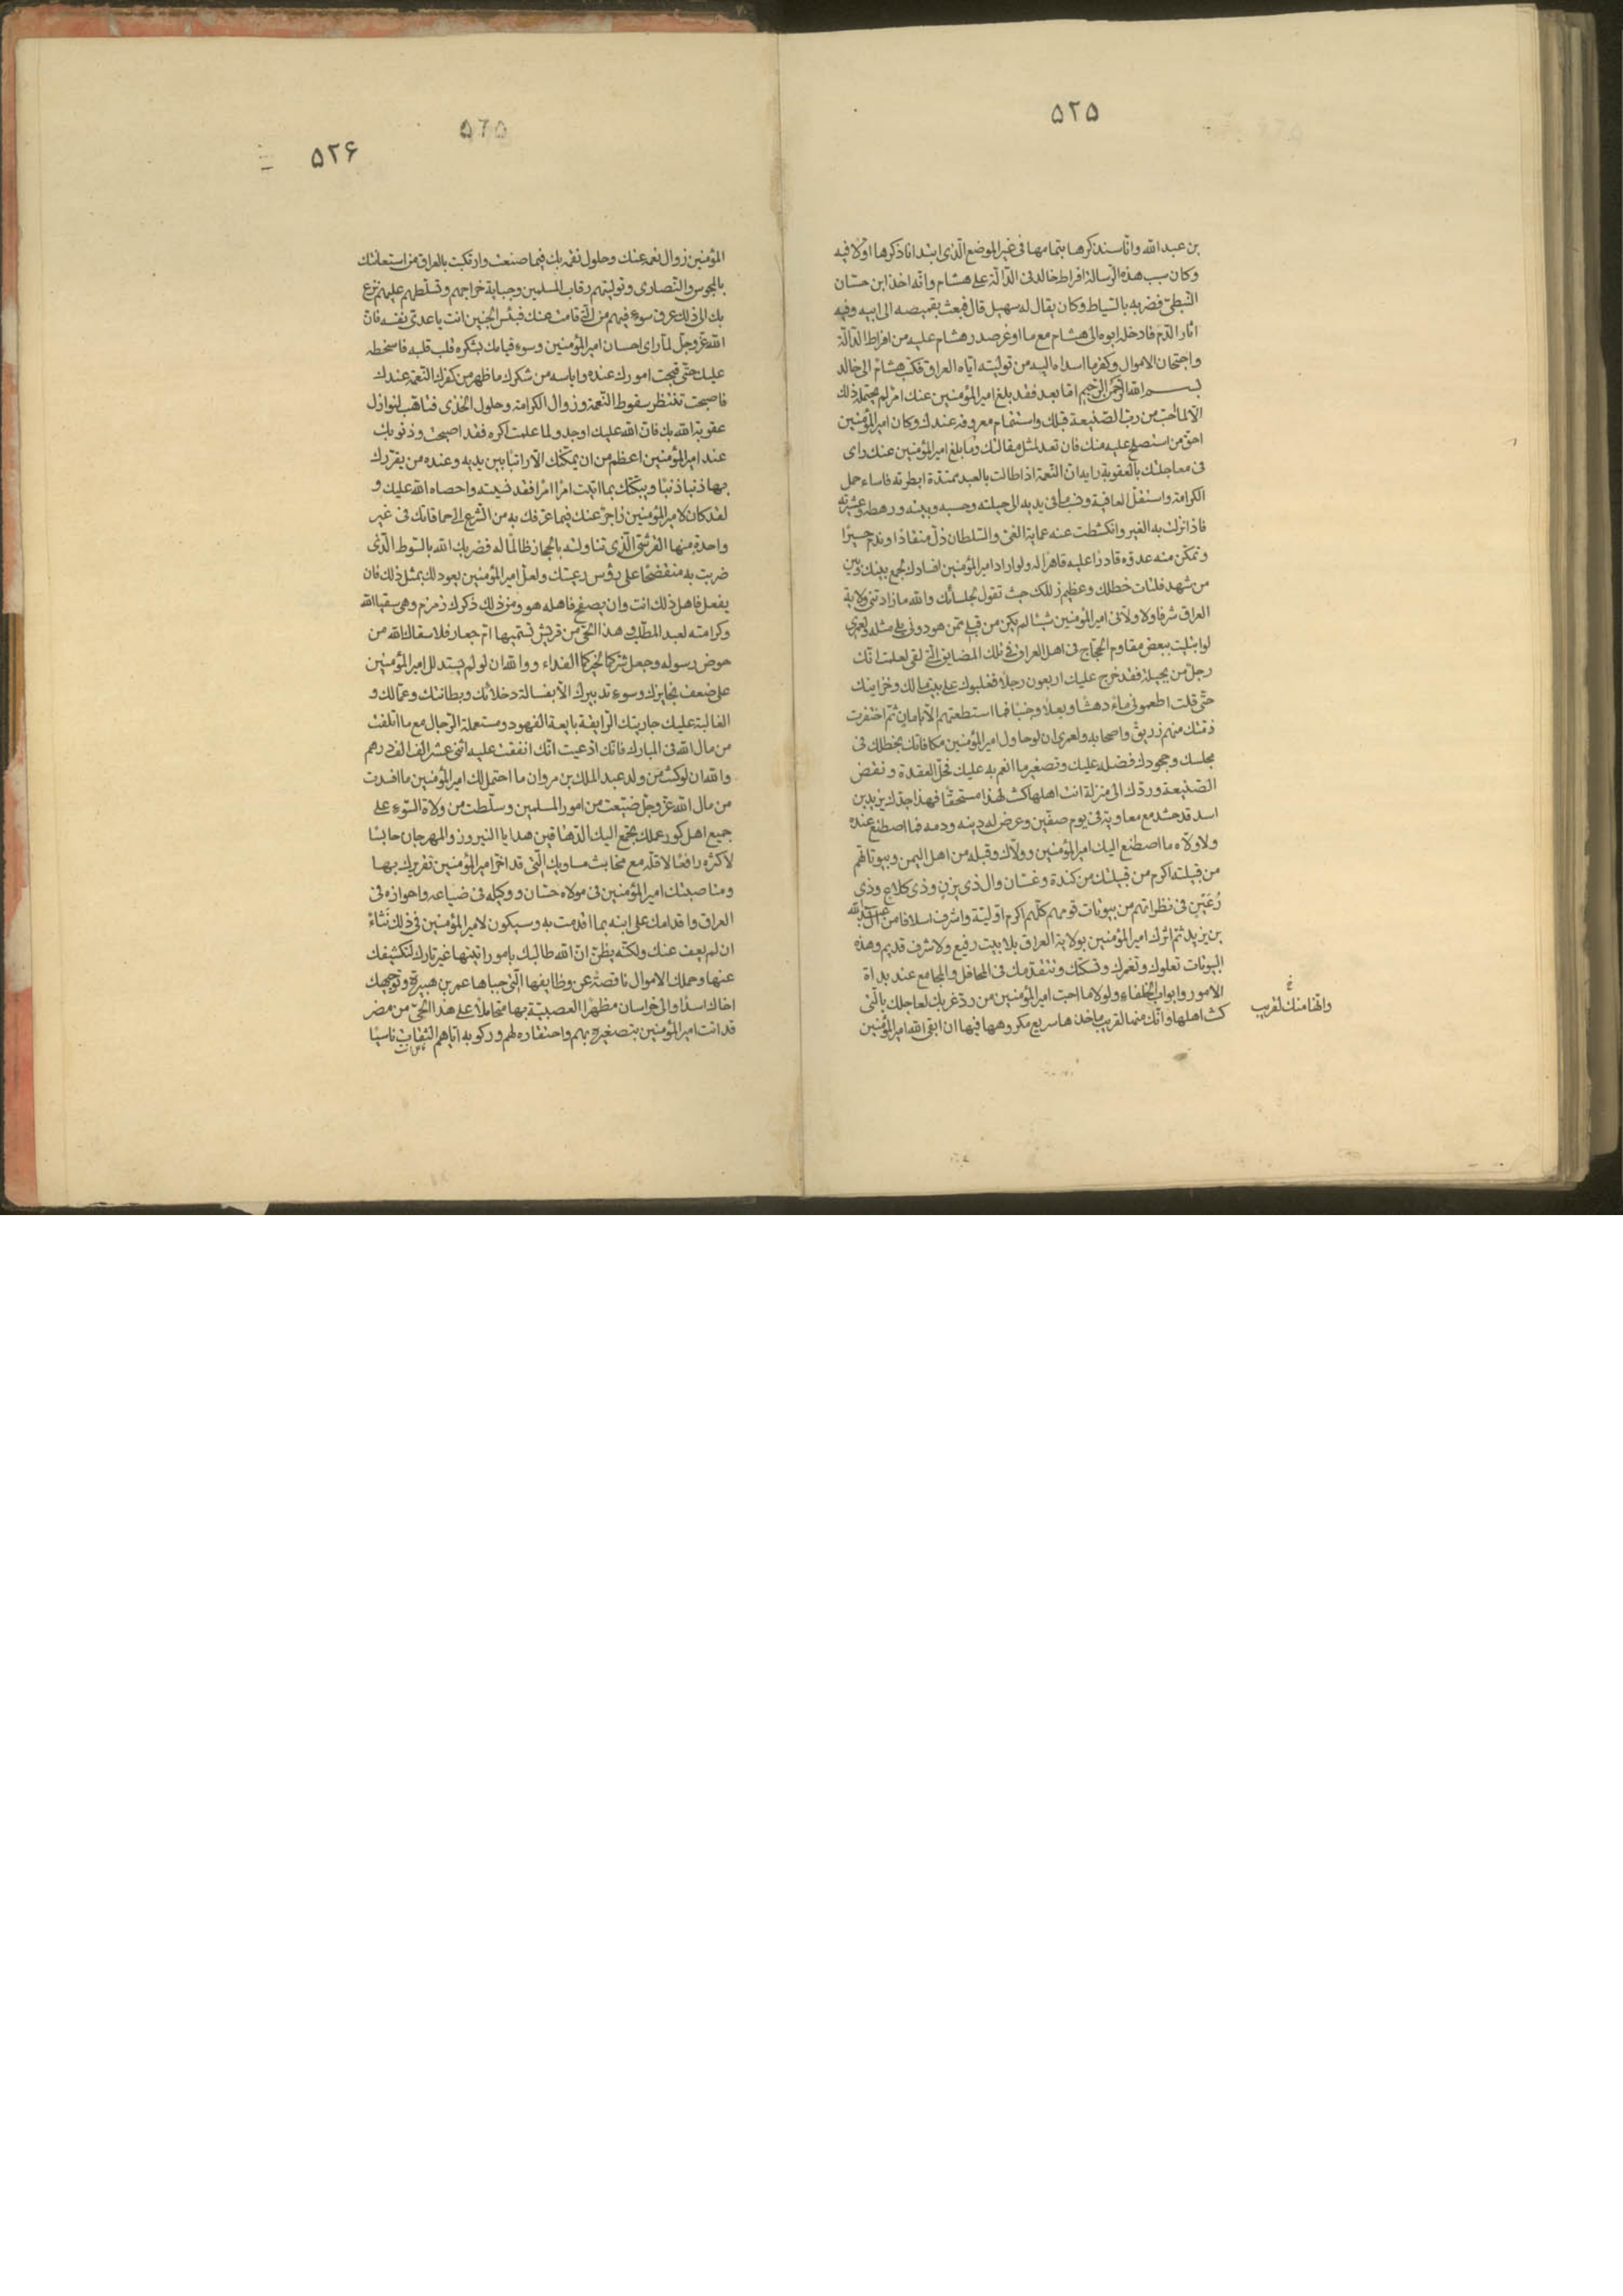 ۵۲۵
بن عبد الله وانا سنذكرها بتمامها فى غير الموضع الّذى ابتدانا ذكرها اوّلا فيه
وكان سبب هذه الرّسالة افراط خالد فى الدّالّة على هشام وانّه اخذ ابن حسّان
النّبطىّ فضربه بالسّياط وكان يقال له سهيل قال فبعث بقميصه الى ابيه وفيه
اثار الدّم فادخله ابوه الى هشام مع ما اوغر صدر هشام عليه من افراط الدّالّة
واحتجان الاموال وكفر ما اسداه اليه من توليته ايّاه العراق فكتب هشام الى خالد
بسم الله الرّحمن الرّحيم امّا بعد فقد بلغ امير المؤمنين عنك امر لم يحتمله ذلك
الّا لما احبّ من ربّ الصّنيعة قبلك واستتمام معروفه عندك وكان امير المؤمنين
احقّ من استصلح عليه منك فان تعد لمثل مقالتك وما بلغ امير المؤمنين عنك راى
فى معاجلتك بالعقوبة رايه ان النّعمة اذا طالت بالعبد ممتدّة ابطرته فاساء حمل
الكرامة واستقلّ العافية ونسب ما فى يديه الى حيلته وحسبه وبيته ورهطه وعشيرته
فاذا نزلت به الغير وانكشطت عنه عماية الغىّ والسّلطان ذلّ منقادًا وندم حسيرًا
وتمكّن منه عدوّه قادرًا عليه قاهرًا له ولو اراد امير المؤمنين افسادك لجمع بينك وبين
من شهد فلتات خطلك وعظيم زللك حيث تقول لجلسائك والله ما زادتنى ولاية
العراق شرفا ولا ولّانى امير المؤمنين شيئا لم يكن من قبلى ممّن هو دونى يلى مثله ولعمرى
لو ابتليت ببعض مقاوم الحجّاج فى اهل العراق فى تلك المضايق الّتى لقى لعلمت انّك
رجل من بجيلة فقد خرج عليك اربعون رجلًا فغلبوك على بيت مالك وخزاينك
حتّى قلت اطعمونى ماءً دهشًا وبعلًا وجبنًا فما استطعتهم الّا بامان ثمّ اخفرت
ذمّتك منهم زريق واصحابه ولعمرى ان لو حاول امير المؤمنين مكافاتك بخطلك فى
مجلسك وجحودك فضله عليك وتصغير ما انعم به عليك فحلّ العقدة ونقض
الصّنيعة وردّك الى منزلة انت اهلها كنت لهذا مستحقًّا فهذا جدّك يزيد بن
اسد قد حشد مع معاوية فى يوم صفّين وعرض له دينه ودمه فما اصطنع عنده
ولا ولّاه ما اصطنع اليك امير المؤمنين وولّاك وقبله من اهل اليمن وبيوتاتهم
من قبيلته اكرم من قبيلتك من كندة وغسّان وال ذى يزن وذى كلاع وذى
رُعَيْن فى نظرائهم من بيوتات قومهم كلّهم اكرم اوّليّة واشرف اسلافا من آل عبد الله
بن يزيد ثمّ اثرك امير المؤمنين بولاية العراق بلا بيت رفيع ولا شرف قديم وهذه
البيوتات تعلوك وتغمرك وتسكتك وتتقدّمك فى المحافل والمجامع عند بداة
الامور وابواب الخلفاء ولولا ما احبّ امير المؤمنين من ردّ غربك لعاجلك بالّتى
كنت اهلها وانّك منها لقريب ماخذها سريع مكروهها فيها ان ابقى الله امير المؤمنين
وانّها منك لقريب
۵۲۵
۵۲۶
المؤمنين زوال نعمه عنك وحلول نقمه بك فيما صنعت وارتكبت بالعراق من استعانتك
بالمجوس والنّصارى وتوليتهم رقاب المسلمين وجباية خراجهم وتسلّطهم عليهم نزع
بك الى ذلك عرق سوء فيهم من الّتى قامت عنك فبئس الجنين انت يا عدىّ نفسه فانّ
الله عزّ وجلّ لمّا راى احسان امير المؤمنين وسوء قيامك بشكره قلب قلبه فاسخطه
عليك حتّى قبحت امورك عنده وايأسه من شكرك ما ظهر من كفرك النّعمة عندك
فاصبحت تنتظر سقوط النّعمة وزوال الكرامة وحلول الخزى فتاهّب لنوازل
عقوبة الله بك فانّ الله عليك اوجد ولما علمت اكره فقد اصبحت وذنوبك
عند امير المؤمنين اعظم من ان يمكّنك الّا راتبًا بين يديه وعنده من يقرّرك
بها ذنبا ذنبًا ويبكّتك بما اتيت امرًا امرًا فقد نسيته واحصاه الله عليك و
لقد كان لامير المؤمنين زاجر عنك فيما عرفك به من التّسرّع الى حماقاتك فى غير
واحدة منها القرشىّ الّذى تناولته بالحجاز ظالمًا له فضربك الله بالسّوط الّذى
ضربت به منفضحًا على رؤس رعيّتك ولعلّ امير المؤمنين يعود لك بمثل ذلك فان
يفعل فاهل ذلك انت وان يصفح فاهله هو ومن ذلك ذكرك زمزم وهى سقيا الله
وكرامته لعبد المطّلب وهذا الحىّ من قريش تسمّيها امّ جعار فلا سقاك الله من
حوض رسوله وجعل شرّكما لخيركما الفداء ووالله ان لو لم يستدلل امير المؤمنين
على ضعف نحايزك وسوء تدبيرك الّا بفسالة دخلائك وبطانتك وعمّالك و
الغالبة عليك جاريتك الرّايقة بايعة الفهود ومستعملة الرّجال مع ما اتلفت
من مال الله فى المبارك فانّك ادّعيت انّك انفقت عليه اثنى عشر الف الف درهم
والله ان لو كنت من ولد عبد الملك بن مروان ما احتمل لك امير المؤمنين ما افسدت
من مال الله عزّ وجلّ ضيّعت من امور المسلمين وسلّطت من ولاة السّوء على
جميع اهل كور عملك يجمع اليك الدّهاقين هدايا النيروز والمهرجان حابسًا
لاكثره رافعًا لاقلّه مع مخابث مساويك الّتى قد اخّر امير المؤمنين تقريرك بها
ومناصبتك امير المؤمنين فى مولاه حسّان ووكيله فى ضياعه واحوازه فى
العراق واقدامك على ابنه بما اقدمت به وسيكون لامير المؤمنين فى ذلك نثاءٌ
ان لم يعف عنك ولكنّه يظنّ انّ الله طالبك بامور اتيتها غير تارك لتكشيفك
عنها وحملك الاموال ناقصة عن وظايفها الّتى جباها عمر بن هبيرة وتوجيهك
اخاك اسدًا والى خراسان مظهرًا العصبيّة بها متحاملًا على هذا الحىّ من مضر
قد اتت امير المؤمنين بتصغيره بهم واحتقاره لهم وركوبه ايّاهم الثّقات ناسيًا